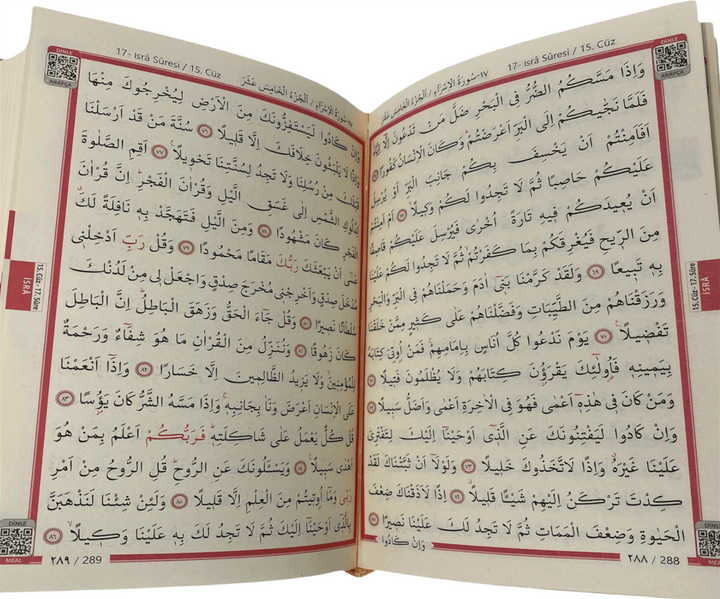 17- İsrâ Sûresi / 15. Cüz
١٧-سُورَةُ الْاِسْرَاءِ / اَلْجُزْءُ الْخَامِسَ عَشَرَ
DİNLE
ARAPÇA
وَاِذَا مَسَّكُمُ الضُّرُّ فِي الْبَحْرِ ضَلَّ مَنْ تَدْعُونَ اِلَّٓا
فَلَمَّا نَجّٰيكُمْ اِلَى الْبَرِّ اَعْرَضْتُمْ وَكَانَ الْاِنْسَانُ كَفُورًا
اَفَاَمِنْتُمْ اَنْ يَخْسِفَ بِكُمْ جَانِبَ الْبَرِّ اَوْ يُرْسِلَ
عَلَيْكُمْ حَاصِبًا ثُمَّ لَا تَجِدُوا لَكُمْ وَكِيلًا ٦٨ اَمْ اَمِنْتُمْ
اَنْ يُعِيدَكُمْ فِيهِ تَارَةً اُخْرٰى فَيُرْسِلَ عَلَيْكُمْ قَاصِفًا
مِنَ الرِّيحِ فَيُغْرِقَكُمْ بِمَا كَفَرْتُمْ ثُمَّ لَا تَجِدُوا لَكُمْ
بِهِ تَبِيعًا ٦٩ وَلَقَدْ كَرَّمْنَا بَنِٓي اٰدَمَ وَحَمَلْنَاهُمْ فِي الْبَرِّ وَالْبَحْرِ
وَرَزَقْنَاهُمْ مِنَ الطَّيِّبَاتِ وَفَضَّلْنَاهُمْ عَلٰى كَثِيرٍ مِمَّنْ خَلَقْنَا
تَفْضِيلًا ٧٠ يَوْمَ نَدْعُوا كُلَّ اُنَاسٍ بِاِمَامِهِمْ فَمَنْ اُوتِيَ كِتَابَهُ
بِيَمِينِهِ فَاُولٰٓئِكَ يَقْرَؤُنَ كِتَابَهُمْ وَلَا يُظْلَمُونَ فَتِيلًا ٧١
وَمَنْ كَانَ فِي هٰذِهِٓ اَعْمٰى فَهُوَ فِي الْاٰخِرَةِ اَعْمٰى وَاَضَلُّ سَبِيلًا ٧٢
وَاِنْ كَادُوا لَيَفْتِنُونَكَ عَنِ الَّذِٓي اَوْحَيْنَٓا اِلَيْكَ لِتَفْتَرِيَ
عَلَيْنَا غَيْرَهُ وَاِذًا لَاتَّخَذُوكَ خَلِيلًا ٧٣ وَلَوْلَٓا اَنْ ثَبَّتْنَاكَ لَقَدْ
كِدْتَ تَرْكَنُ اِلَيْهِمْ شَيْـًٔا قَلِيلًا ٧٤ اِذًا لَاَذَقْنَاكَ ضِعْفَ
الْحَيٰوةِ وَضِعْفَ الْمَمَاتِ ثُمَّ لَا تَجِدُ لَكَ عَلَيْنَا نَصِيرًا ٧٥
وَاِنْ كَادُوا
٢٨٨ / 288
15. Cüz - 17. Sûre
İSRÂ
DİNLE
MEAL
17- İsrâ Sûresi / 15. Cüz
١٧-سُورَةُ الْاِسْرَاءِ / اَلْجُزْءُ الْخَامِسَ عَشَرَ
DİNLE
ARAPÇA
وَاِنْ كَادُوا لَيَسْتَفِزُّونَكَ مِنَ الْاَرْضِ لِيُخْرِجُوكَ مِنْهَا
وَاِذًا لَا يَلْبَثُونَ خِلَافَكَ اِلَّا قَلِيلًا ٧٦ سُنَّةَ مَنْ قَدْ اَرْسَلْنَا
قَبْلَكَ مِنْ رُسُلِنَا وَلَا تَجِدُ لِسُنَّتِنَا تَحْوِيلًا ٧٧ اَقِمِ الصَّلٰوةَ
لِدُلُوكِ الشَّمْسِ اِلٰى غَسَقِ الَّيْلِ وَقُرْاٰنَ الْفَجْرِ اِنَّ قُرْاٰنَ
الْفَجْرِ كَانَ مَشْهُودًا ٧٨ وَمِنَ الَّيْلِ فَتَهَجَّدْ بِهِ نَافِلَةً لَكَ
عَسٰٓى اَنْ يَبْعَثَكَ رَبُّكَ مَقَامًا مَحْمُودًا ٧٩ وَقُلْ رَبِّ اَدْخِلْنِي
مُدْخَلَ صِدْقٍ وَاَخْرِجْنِي مُخْرَجَ صِدْقٍ وَاجْعَلْ لِي مِنْ لَدُنْكَ
سُلْطَانًا نَصِيرًا ٨٠ وَقُلْ جَٓاءَ الْحَقُّ وَزَهَقَ الْبَاطِلُ اِنَّ الْبَاطِلَ
كَانَ زَهُوقًا ٨١ وَنُنَزِّلُ مِنَ الْقُرْاٰنِ مَا هُوَ شِفَٓاءٌ وَرَحْمَةٌ
لِلْمُؤْمِنِينَ وَلَا يَزِيدُ الظَّالِمِينَ اِلَّا خَسَارًا ٨٢ وَاِذَٓا اَنْعَمْنَا
عَلَى الْاِنْسَانِ اَعْرَضَ وَنَاٰ بِجَانِبِهِ وَاِذَا مَسَّهُ الشَّرُّ كَانَ يَؤُسًا ٨٣
قُلْ كُلٌّ يَعْمَلُ عَلٰى شَاكِلَتِهِ فَرَبُّكُمْ اَعْلَمُ بِمَنْ هُوَ
اَهْدٰى سَبِيلًا ٨٤ وَيَسْـَٔلُونَكَ عَنِ الرُّوحِ قُلِ الرُّوحُ مِنْ اَمْرِ
رَبِّي وَمَٓا اُوتِيتُمْ مِنَ الْعِلْمِ اِلَّا قَلِيلًا ٨٥ وَلَئِنْ شِئْنَا لَنَذْهَبَنَّ
بِالَّذِٓي اَوْحَيْنَٓا اِلَيْكَ ثُمَّ لَا تَجِدُ لَكَ بِهِ عَلَيْنَا وَكِيلًا ٨٦
٢٨٩ / 289
15. Cüz - 17. Sûre
İSRÂ
DİNLE
MEAL